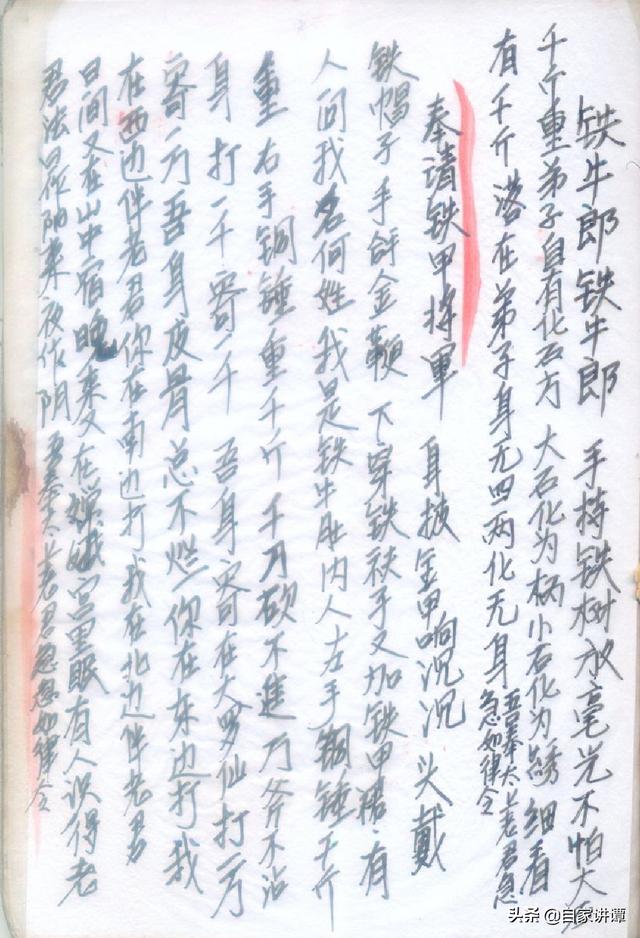 铁牛郎铁牛郎 手持铁树放毫光不怕大江
千斤重弟子自有化石方 大石化为柄小石化为绣细看
有千斤落在弟子身无四两化无身 吾奉太上老君急
急如律令
奉请铁甲将军 身披金甲响沉沉 头戴
铁帽子手 金鞭 下穿铁 子又加铁甲裙有
人问我名何姓我是铁牛肚内人左手铜锤千斤
重右手铜锤重千斤 千刀砍不进万斧不沾
身 打一千寄一千 吾身寄在大罗仙打一万
寄一万吾身皮骨总不烂你在东边打我
在西边伴老君你在南边打我在北边伴老君
日间又在山中宿晚来又在嫦娥宫里眠有人识得老
君法日作阳来夜作阴 吾奉太上老君急急如律令
头条 @自家讲谭